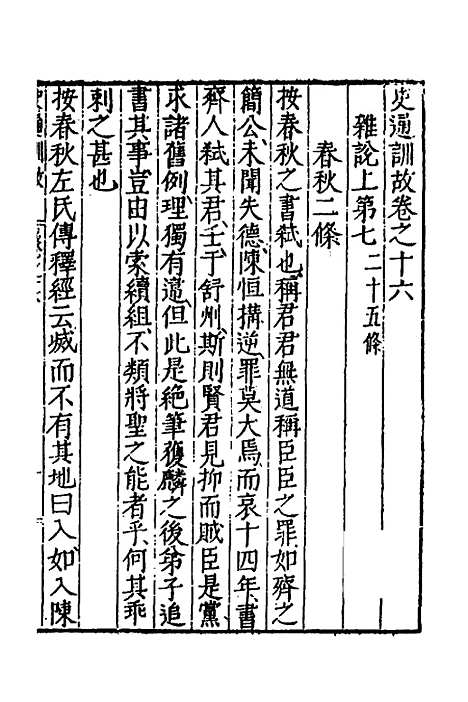 史通訓故卷之十六
雜說上第七二十五條
春秋二條
按春秋之書弒也稱君君無道稱臣臣之罪如齊之
簡公未聞失德陳恒搆逆罪莫大焉而哀十四年書
齊人弒其君壬于舒州斯則賢君見抑而賊臣是黨
求諸舊例理獨有違但此是絶筆獲麟之後弟子追
書其事豈由以索續組不類將聖之能者乎何其乖
剌之甚也
按春秋左氏傳釋經云滅而不有其地曰入如入陳